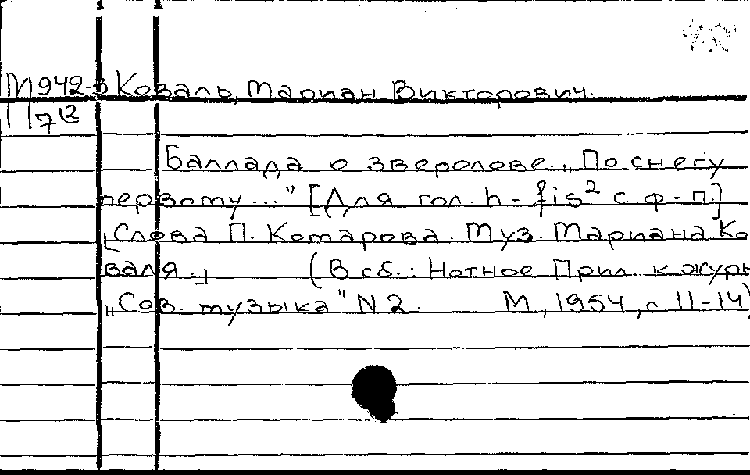 М942-3 Коваль, Мариан Викторович.
713
Баллада о зверолове. „По снегу
первому..." [Для гол. h - fis² с ф-п.]
[Слова П. Комарова. Муз. Мариана Ко-
валя.] (В сб.: Нотное Прил. к журн
„Сов. музыка" N 2. М., 1954, с 11-14)